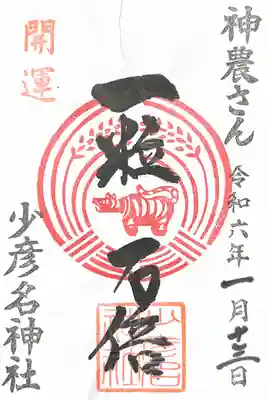 神農さん
令和六年一月十三日
一粒万倍
開運
少彦名神社